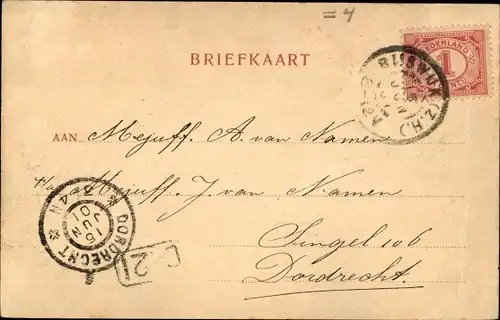 = 4
BRIEFKAART
NEDERLAND
1
CENT
RIJSWIJK (Z.H)
AAN Mejuff. A. van Namen
Mejuff. J. van Namen
Singel 106
Dordrecht.
DORDRECHT
15
JUN
01
C 2